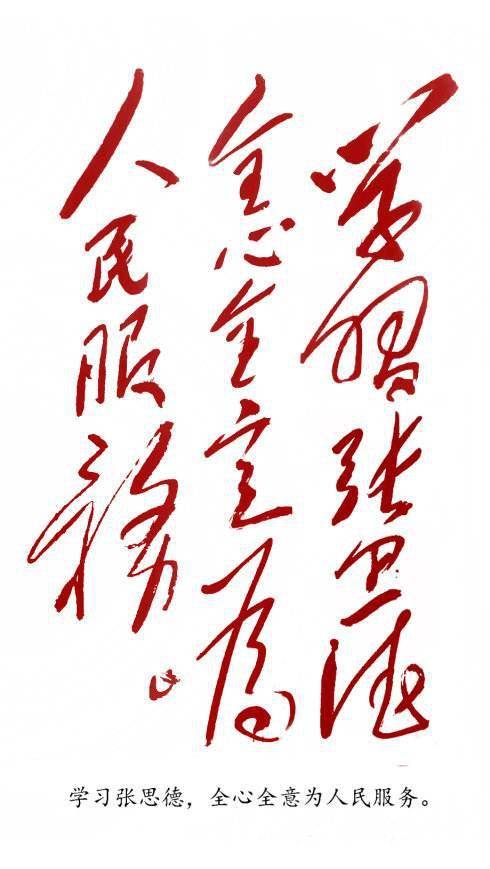 学習张思德
全心全意為
人民服務。
学习张思德，全心全意为人民服务。